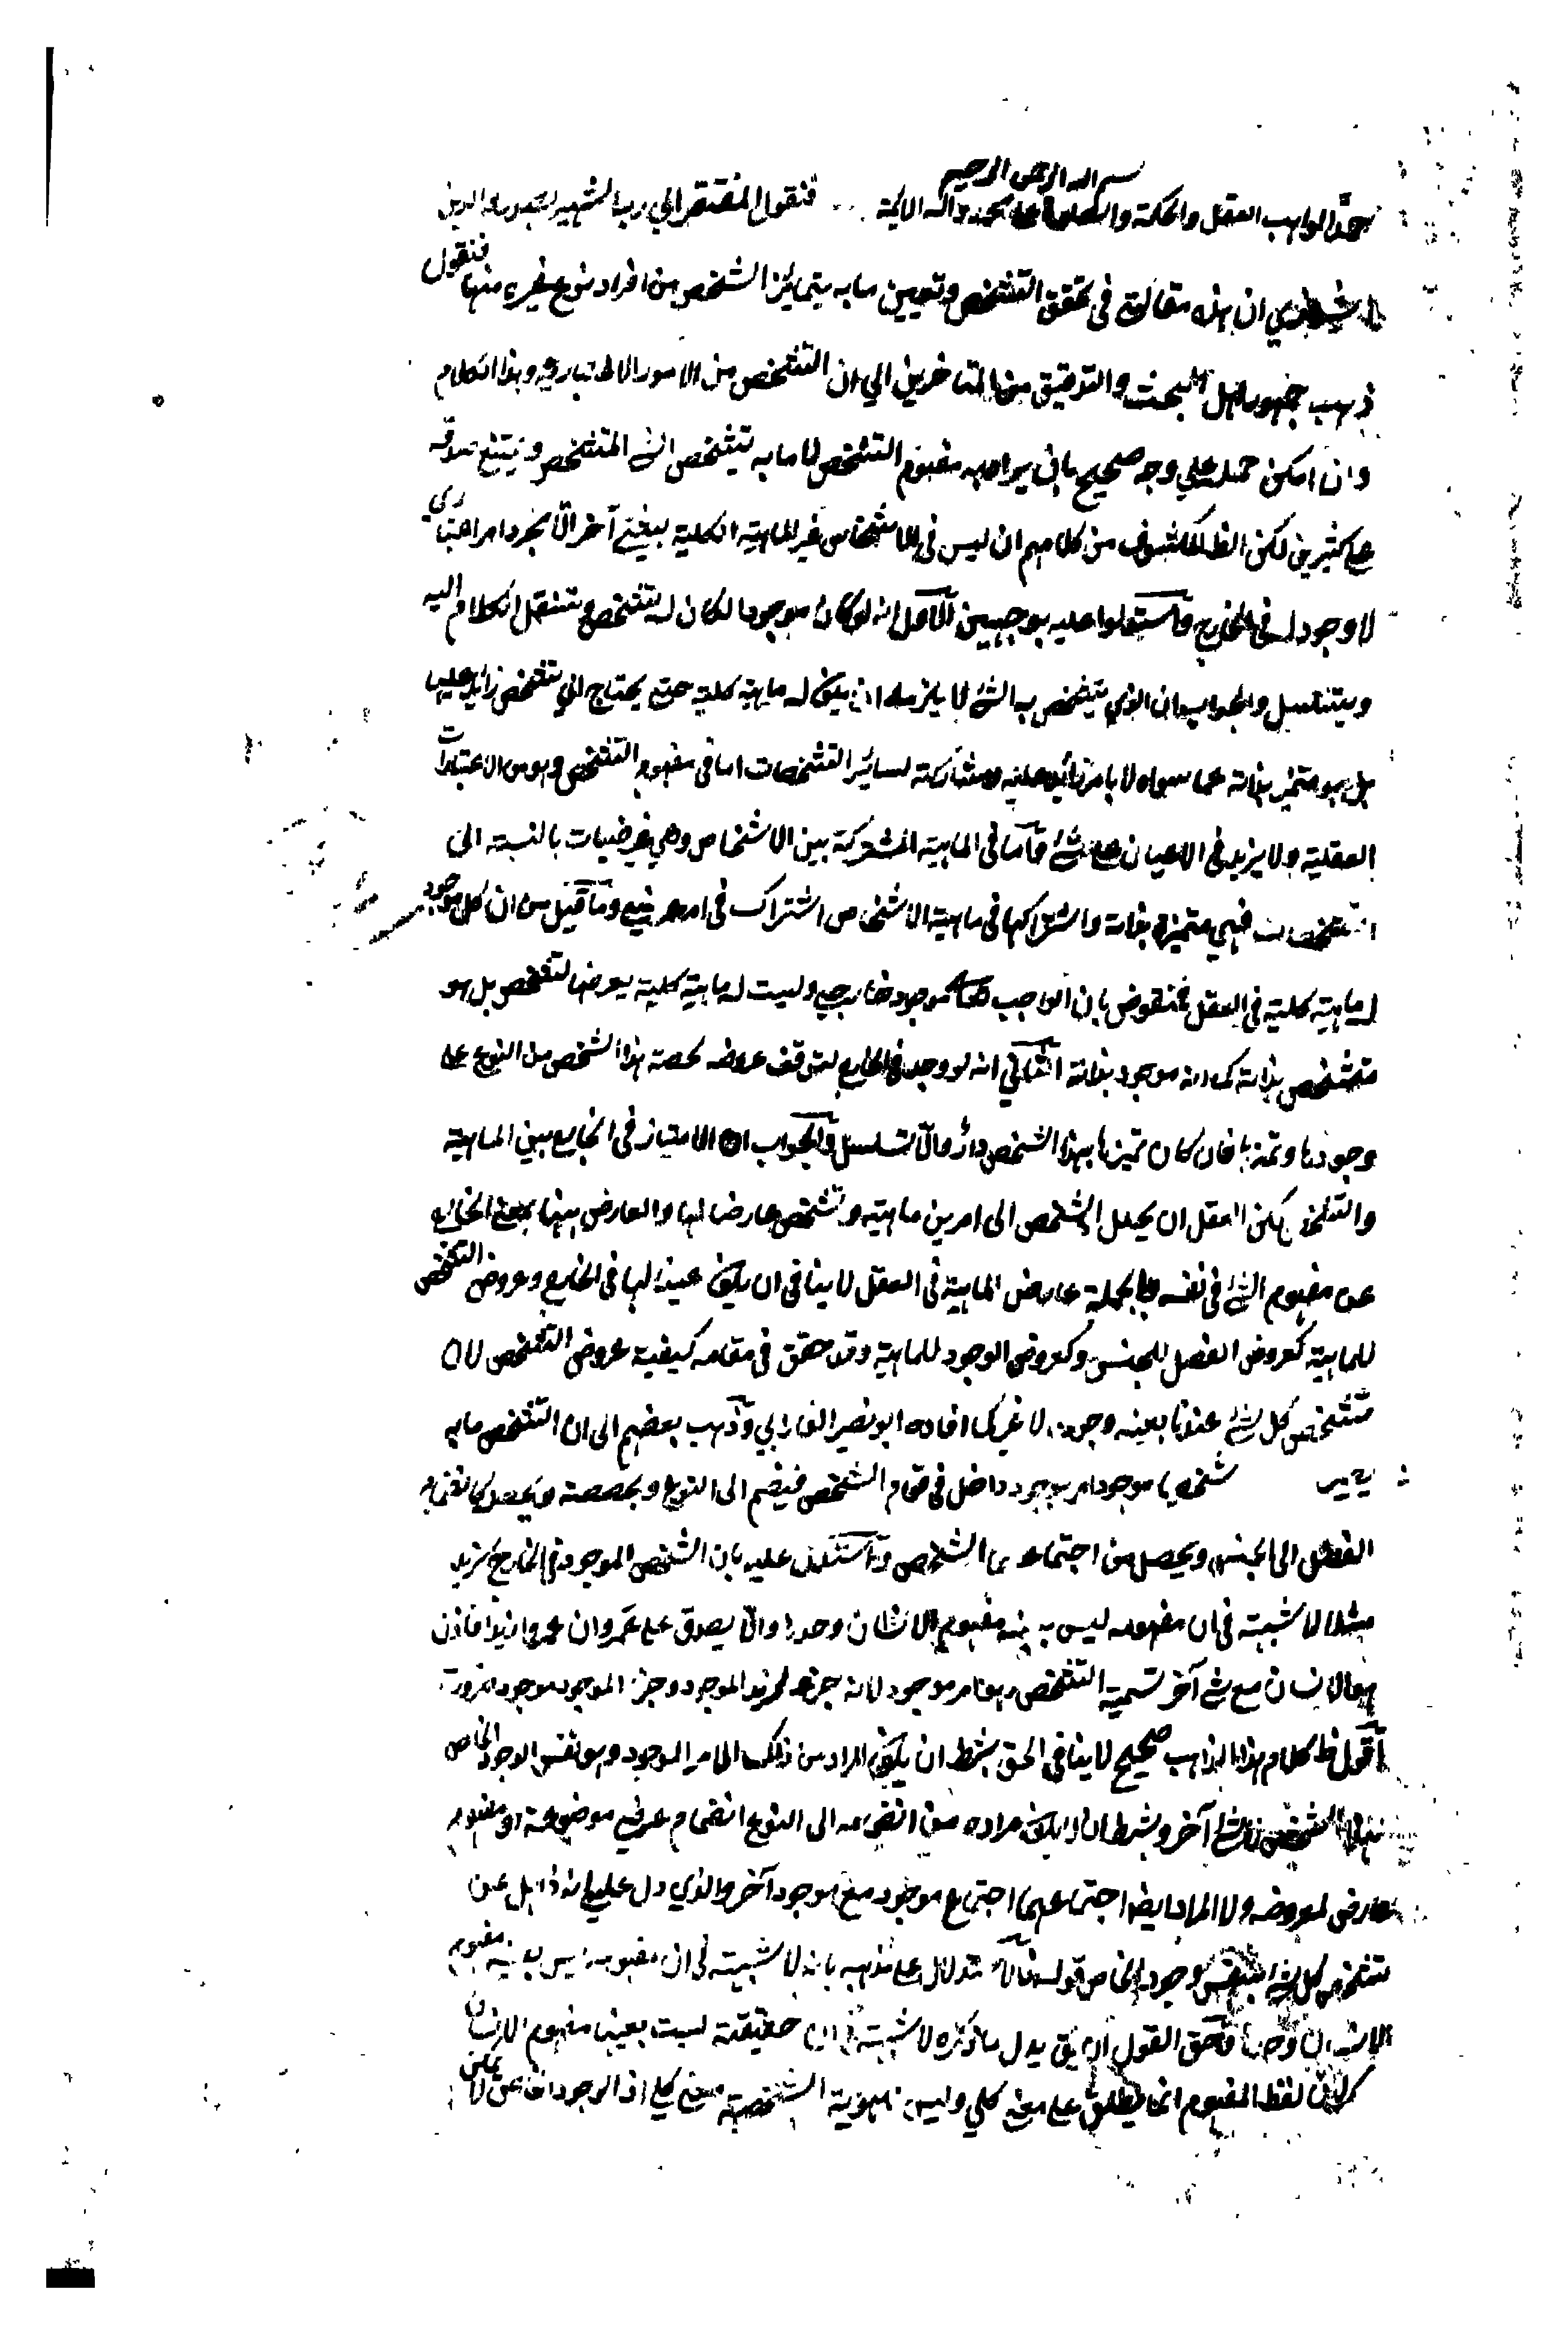 بسم الله الرحمن الرحيم
حمدا لواهب العقل والحكمة والصلوة على محمد واله الائمة فنقول المفتقر الي ربه الشهير بصدر الدين
الشيرازي ان هذه مقالتي في تحقق التشخص وتعيين ما به يتمايز الشخص من افراد نوع غيره منها فنقول
ذهب جمهور اهل البحث والتدقيق من المتاخرين الي ان التشخص من الامور الاعتبارية وهذا الكلام
وان امكن حمله علي وجه صحيح بان يراد به مفهوم التشخص لا ما به يتشخص الشئ المتشخص ويمتنع صدقه
على كثيرين لكن الظ المكشوف من كلامهم ان ليس في الاشخاص غير الماهية الكلية بشئ آخر الا بمجرد امر اعتباري
لا وجود له في الخارج واستدلوا عليه بوجهين الاول انه لو كان موجودا لكان له تشخص وننقل الكلام اليه
ويتسلسل والجواب ان الذي يتشخص به الشئ لا يلزمه ان يكون له ماهية كلية حتى يحتاج الي تشخص زايد عليها
بل هو متميز بذاته عما سواه لا بامر زائد عليه ومشاركته لسائر التشخصات اما في مفهوم التشخص وهو من الاعتبارات
العقلية ولا يزيد في الاعيان على شئ واما في الماهية المشتركة بين الاشخاص وهي عرضيات بالنسبة الى
التشخصات فهي متميزة بذاته واشتراكها في ماهية الاشخاص اشتراك في امر عرضي وما قيل من ان كل موجود
له ماهية كلية في العقل فمنقوض بان الواجب تعالى موجود خارجي وليست له ماهية كلية يعرضها التشخص بل هو
متشخص بذاته كما انه موجود بذاته الثاني انه لو وجد في الخارج لتوقف عروضه لحصة هذا الشخص من النوع على
وجودها وتميزها فان كان تميزها بهذا الشخص دار والا تسلسل والجواب ان الامتياز في الخارج بين الماهية
والتشخص لكن العقل ان يحلل الشخص الى امرين ماهية وتشخص عارض لها والعارض هيهنا بمعنى الخارج
عن مفهوم الشئ في نفسه وبالجملة عارض الماهية في العقل لا ينافي ان يكون عينا لها في الخارج وعروض التشخص
للماهية كعروض الفصل للجنس وكعروض الوجود للماهية وقد حقق في مقامه كيفية عروض التشخص لان
تشخص كل شئ عندنا بعينه وجوده لا غير كما افاده ابو نصر الفارابي وذهب بعضهم الى ان التشخص ما به
يصير شخصا موجود امر موجود داخل في قوام الشخص فيضم الى النوع ويحصصه ويحصله كانضمام
الفصل الى الجنس ويحصل من اجتماعهما الشخص واستدل عليه بان الشخص الموجود في الخارج كزيد
مثلا لا شبهة في ان مفهومه ليس بعينه مفهوم الانسان وحده والا يصدق على عمرو ان عمروا زيد فاذن
هو الانسان مع شئ آخر نسميه التشخص وهو امر موجود لانه جزء لزيد الموجود وجزء الموجود موجود ضرورة
اقول ظ كلام هذا الذاهب صحيح لا ينافي الحق بشرط ان يكون المراد من ذلك الامر الموجود وهو نفس الوجود الخاص
لهذا الشخص لا شئ آخر وبشرط ان لا يكون مراده من انضمامه الى النوع انضمام عرض موضوعه او مفهوم
عارض لمعروضه ولا المراد ايضا اجتماعهما اجتماع موجود مع موجود آخر والذي دل عليه انه ذاهل عن
تشخص كل شئ بنفس وجوده الخاص قوله استدلال على مذهبه بانه لا شبهة في ان مفهومه ليس بعينه مفهوم
الانسان وحده وحق القول ان يق بدل ما ذكره لا شبهة في ان حقيقته ليست بعينها مفهوم الانسان
لان لفظ المفهوم انما يطلق على معنى كلي وليس الهوية الشخصية معنى كلي اذ الوجود